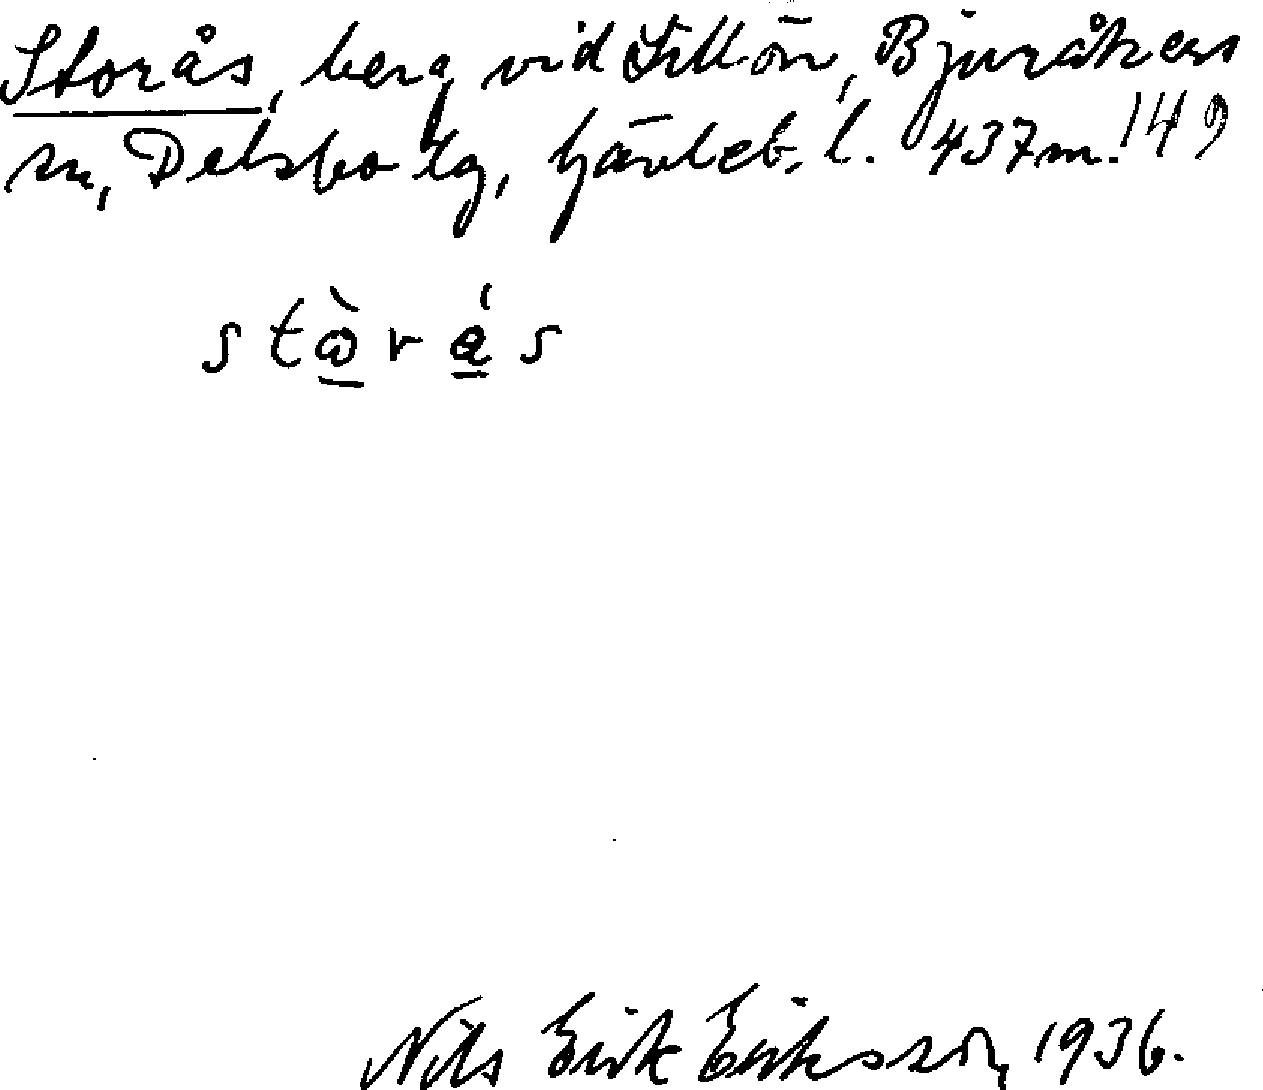 Storås, berg vid Sillön, Bjuråkers
sn, Delsbo tg, Gävleb. l. 437m. 149
stὼ̲rá̲s
Nils Erik Eriksson, 1936.